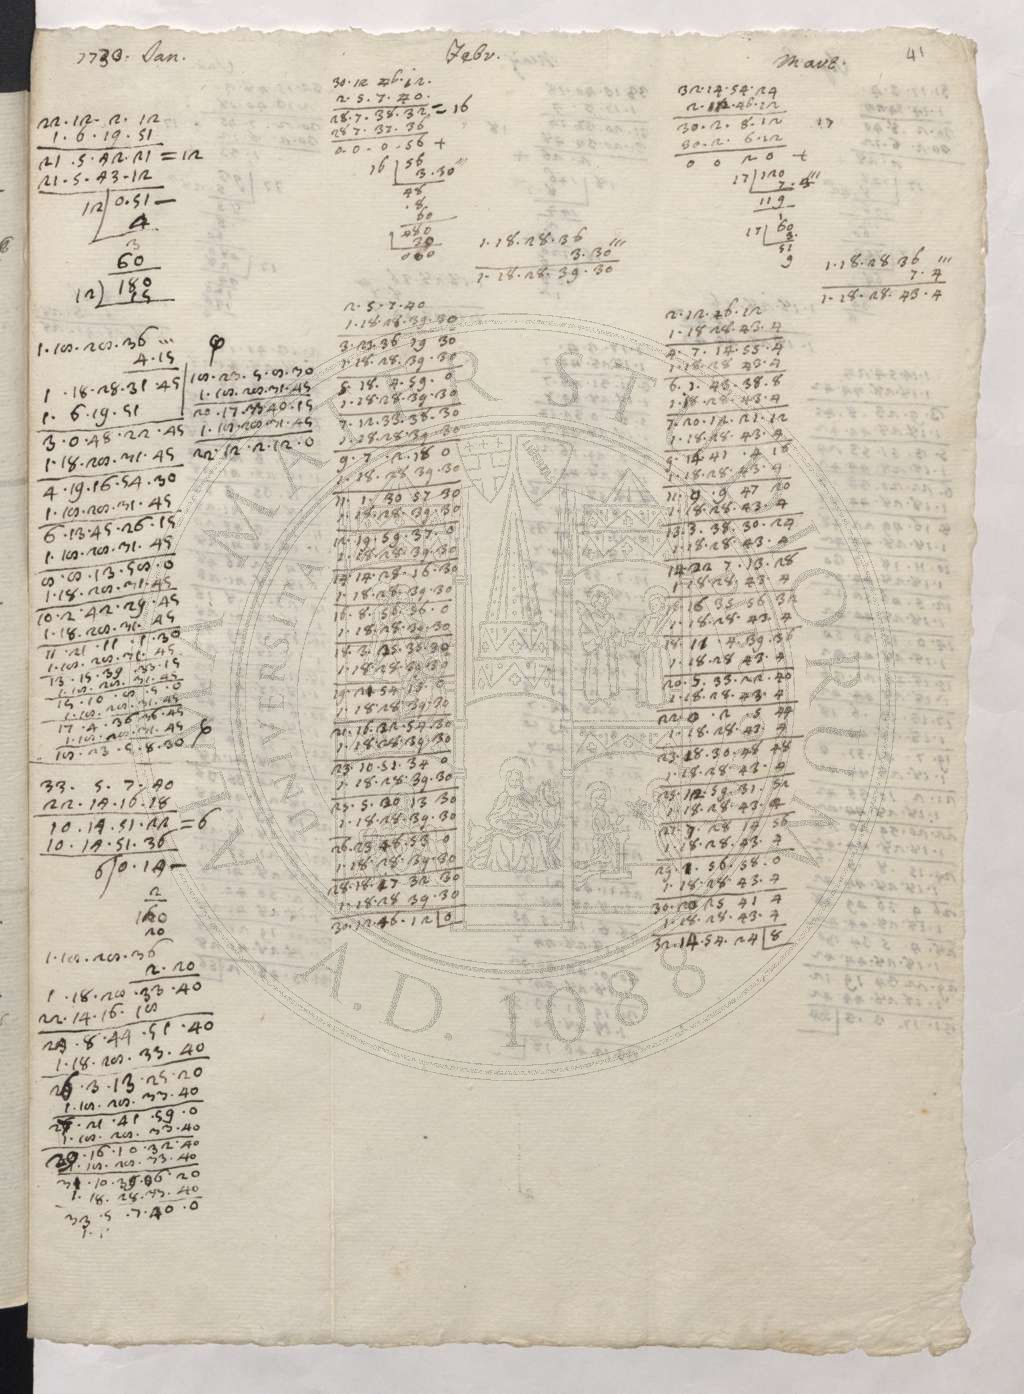 1730. Jan.
22.12.2.12
1.6.19.51
21.5.42.21 = 12
21.5.43.12
12 | 0.51 —
4
3
60
12) 180
15
1.18.28.36 '''
4.15
1.18.28.31.45
1.6.19.51
3.0.48.22.45
1.18.28.31.45
4.19.16.54.30
1.18.28.31.45
6.13.45.26.15
1.18.28.31.45
8.8.13.58.0
1.18.28.31.45
10.2.42.29.45
1.18.28.31.45
11.21.11.1.30
1.18.28.31.45
13.15.39.33.15
1.18.28.31.45
15.10.8.5.0
1.18.28.31.45
17.4.36.36.45
1.18.28.31.45
18.23.5.8.30 φ
φ
18.23.5.8.30
1.18.28.31.45
20.17.33.40.15
1.18.28.31.45
22.12.2.12.0
33.5.7.40
22.14.16.18
10.14.51.22 = 6
10.14.51.36
6 | 0.14 —
2
140
20
1.18.28.36
2.20
1.18.28.33.40
22.14.16.18
24.8.44.51.40
1.18.28.33.40
26.3.13.25.20
1.18.28.33.40
27.21.41.59.0
1.18.28.33.40
29.16.10.32.40
1.18.28.33.40
31.10.39.6.20
1.18.28.33.40
33.5.7.40.0
Febr.
30.12.46.12.
2.5.7.40.
28.7.38.32 = 16
28.7.37.36
0.0.0.56 +
16 | 56
3.30 '''
48
.8.
60
480
30
000
1.18.28.36
3.30 '''
1.18.28.39.30
2.5.7.40
1.18.28.39.30
3.23.36.19.30
1.18.28.39.30
5.18.4.59.0
1.18.28.39.30
7.12.33.38.30
1.18.28.39.30
9.7.2.18.0
1.18.28.39.30
11.1.30.57.30
1.18.28.39.30
12.19.59.37.0
1.18.28.39.30
14.14.28.16.30
1.18.28.39.30
16.8.56.56.0
1.18.28.39.30
18.3.25.35.30
1.18.28.39.30
19.21.54.15.0
1.18.28.39.30
21.16.22.54.30
1.18.28.39.30
23.10.51.34.0
1.18.28.39.30
25.5.20.13.30
1.18.28.39.30
26.23.48.53.0
1.18.28.39.30
28.18.17.32.30
1.18.28.39.30
30.12.46.12 | 0
41
32.14.54.24
2.12.46.12
30.2.8.12 17
30.2.6.12
0 0 20 +
17 | 120
7.3 '''
119
1
17 | 60
3
51
9
1.18.28.36 '''
7.4
1.18.28.43.4
2.12.46.12
1.18.28.43.4
4.7.14.55.4
1.18.28.43.4
6.1.43.38.8
1.18.28.43.4
7.20.12.21.12
1.18.28.43.4
9.14.41.4.16
1.18.28.43.4
11.9.9.47.20
1.18.28.43.4
13.3.38.30.24
1.18.28.43.4
14.22.7.13.28
1.18.28.43.4
16.16.35.56.32
1.18.28.43.4
18.11.4.39.36
1.18.28.43.4
20.5.33.22.40
1.18.28.43.4
22.0.2.5.44
1.18.28.43.4
23.18.30.48.48
1.18.28.43.4
25.12.59.31.52
1.18.28.43.4
27.7.28.14.56
1.18.28.43.4
29.1.56.58.0
1.18.28.43.4
30.20.25.41.4
1.18.28.43.4
32.14.54.24 | 8
ALMA MATER STUDIORUM
UNIVERSITÀ
A.D. 1088